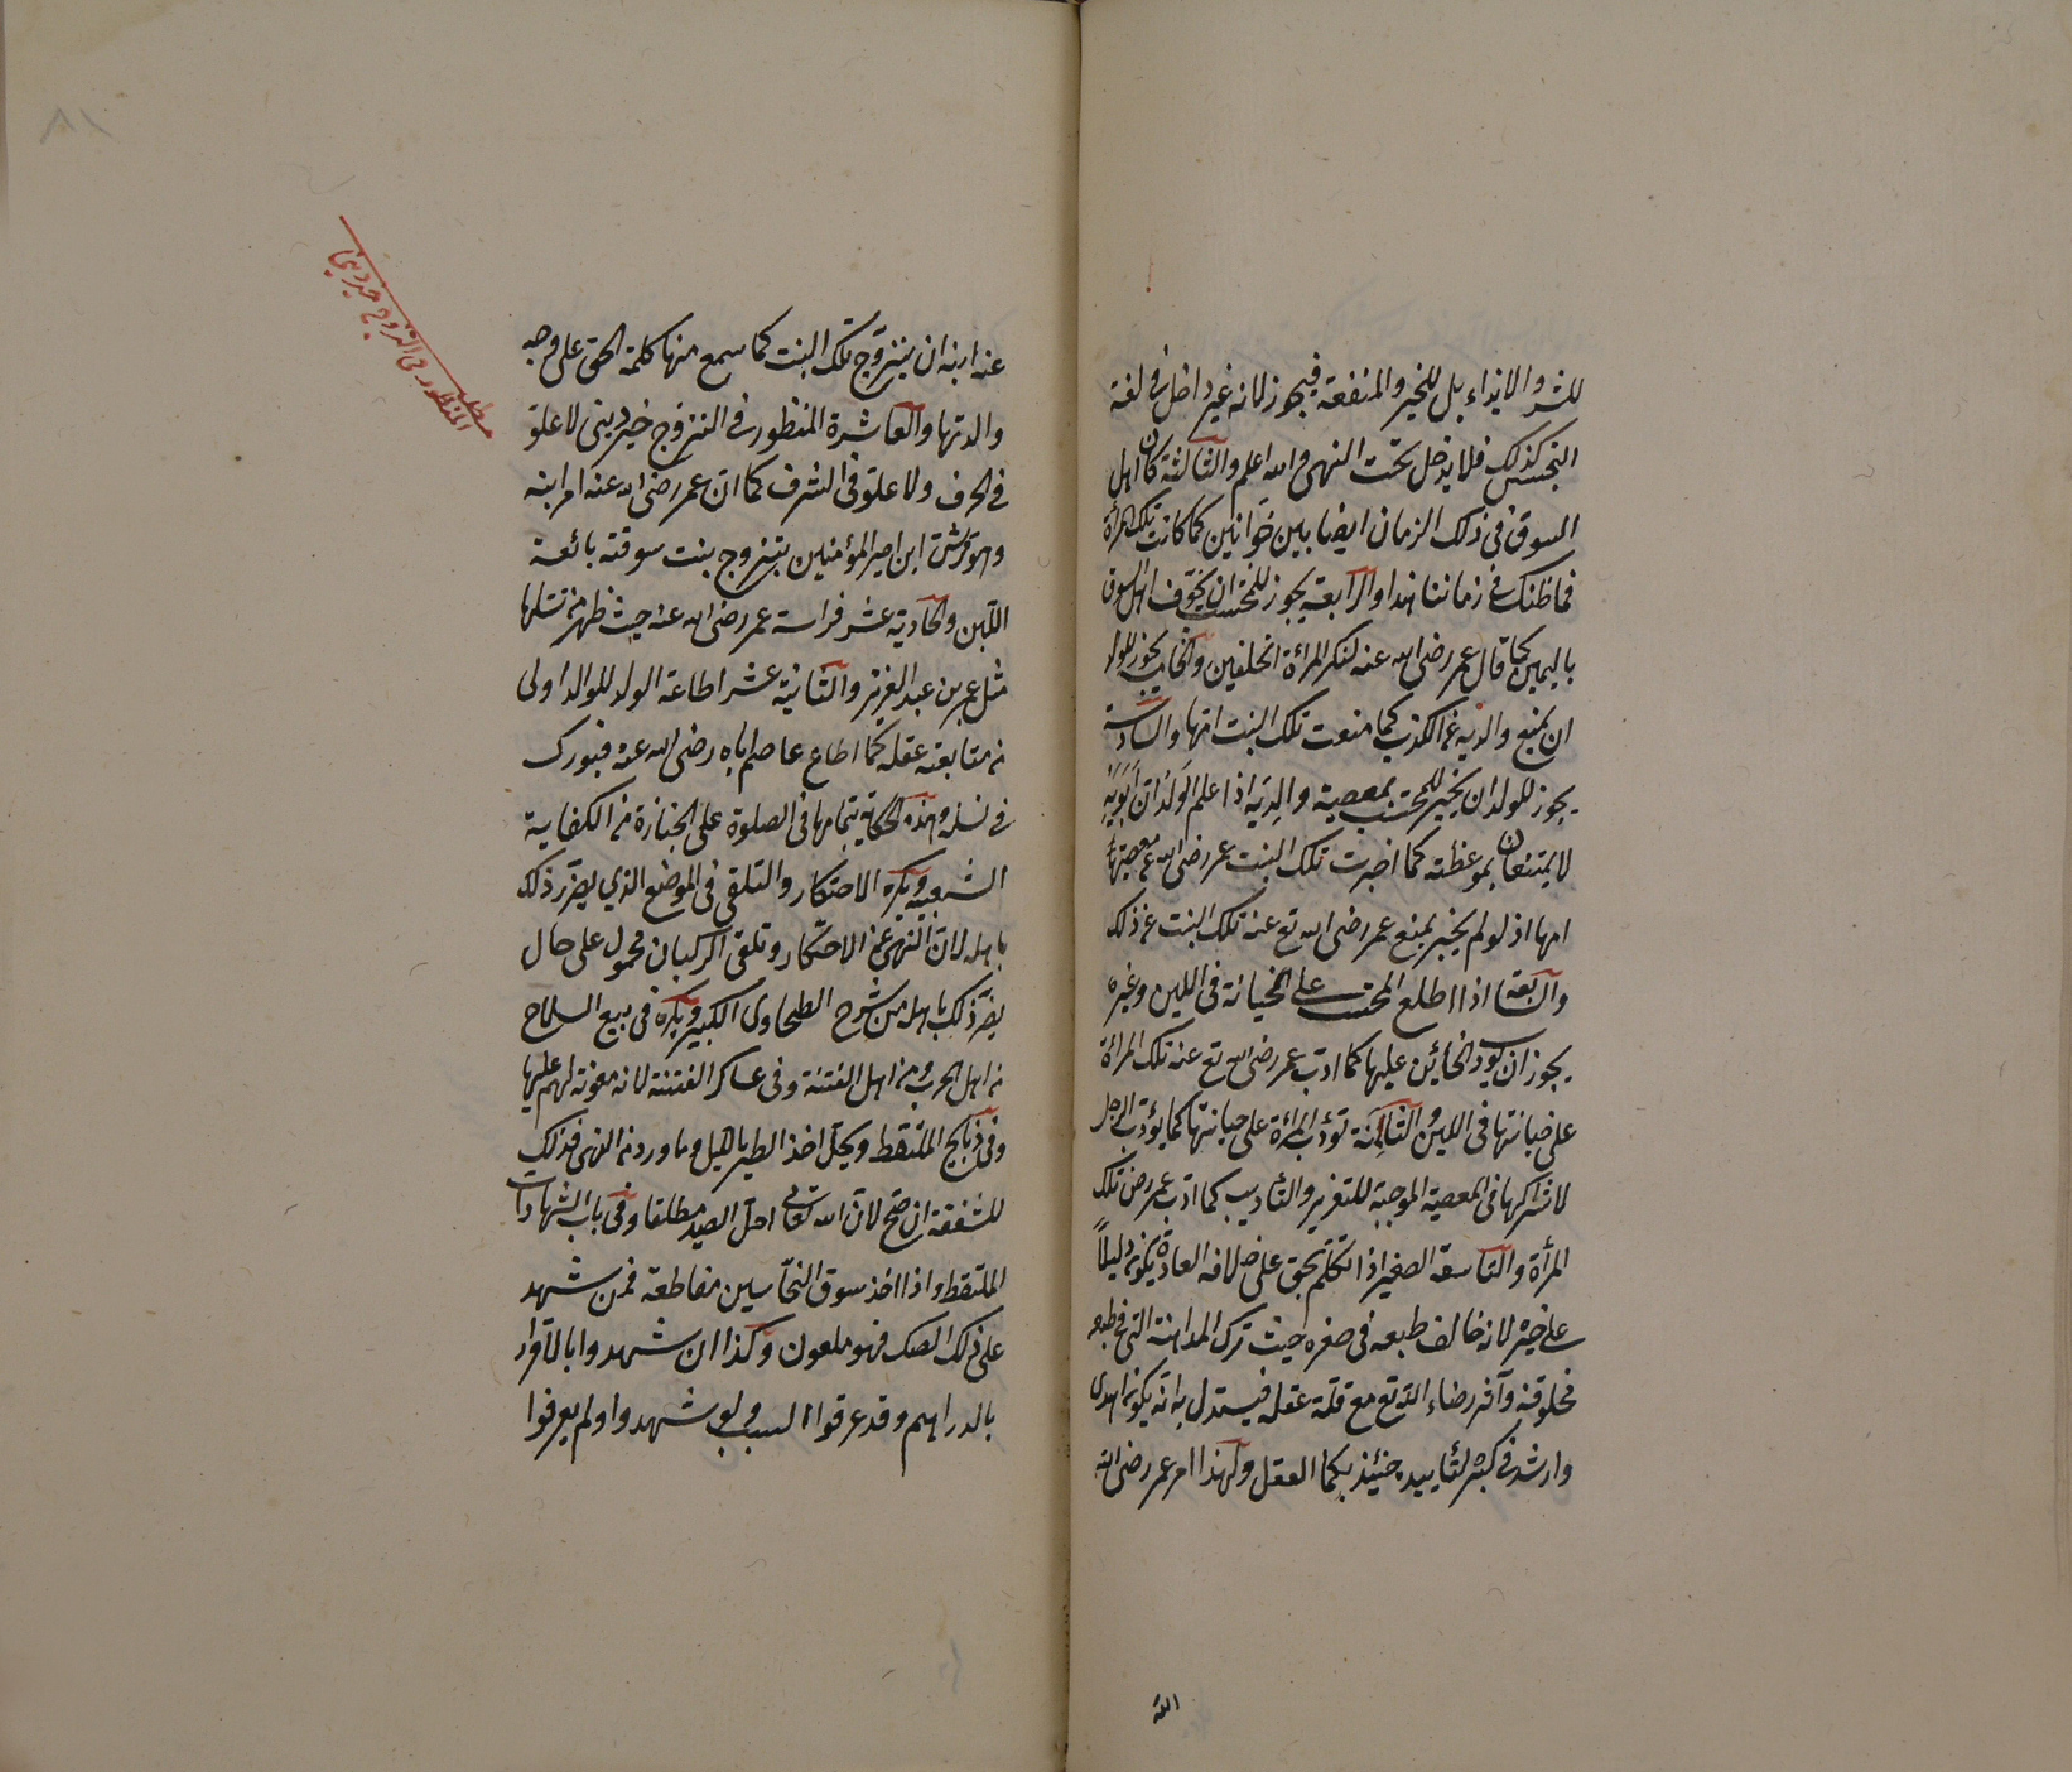 للشر والايذاء بل للخير والمنفعة فيجوز لانه غير داخل في لغة
التجسس كذلك فلا يدخل تحت النهى والله اعلم والثالثة كان اهل
السوق في ذلك الزمان ايضا بين خوانين كما كانت تلك المرأة
فما ظنك في زماننا هذا والرابعة يجوز للمحتسب ان يخوف اهل السوق
باليمين كما قال عمر رضى الله عنه لتلك المرأة اتحلفين والخامسة يجوز للولد
ان يمنع والديه عن الكذب كما منعت تلك البنت امها والسادسة
يجوز للولد ان يخبر للمحتسب بمعصية والديه اذا علم الولد ان ابويه
لا يمتنعان بموعظته كما اخبرت تلك البنت عمر رضى الله عن معصيتها
امها اذ لو لم يخبر يمنع عمر رضى الله تع عنه تلك البنت عن ذلك
والسابعة اذا اطلع المحتسب على الخيانة فى اللبن وغيره
يجوز ان يؤدب الخائن عليها كما ادب عمر رضى الله تع عنه تلك المرأة
على خيانتها فى اللبن والثامنة تؤدب المرأة على خيانتها كما يؤدب الرجل
لاشتراكها فى المعصية الموجبة للتعزير والتأديب كما ادب عمر رض تلك
المرأة والتاسعة الصغير اذا تكلم بحق على خلاف العادة يكون دليلاً
على خيره لانه خالف طبعه فى صغره حيث ترك المداهنة التى في طبعه
مخلوقة وآثر رضاء الله تع مع قلة عقله فيستدل به انه يكون اهدى
وارشد في كبره لتأييده حينئذ بكمال العقل ولهذا امر عمر رضى الله
الله
عنه ابنه ان يتزوج تلك البنت كما سمع منها كلمة الحق على وجه
والدتها والعاشرة المنظور في التزوج خير دينى لا علو
في الحرف ولا علو فى الشرف كما ان عمر رضى الله عنه امر ابنه
وهو قرشى ابن امير المؤمنين بتزوج بنت سوقته بائعة
اللبن والحادية عشر فراسة عمر رضى الله عنه حيث ظهر من نسلها
مثل عمر بن عبد العزيز والثانية عشر اطاعة الولد للوالد اولى
من متابعة عقله كما اطاع عاصم اباه رضى الله عنه فبورك
في نسله وهذه الحكاية بتمامها فى الصلوة على الجنازة من الكفاية
الشعبيه ويكره الاحتكار والتلقى فى الموضع الذي يضر ذلك
باهله لان النهى عن الاحتكار وتلقى الركبان محمول على حال
يضر ذلك باهله من شرح الطحاوى الكبير ويكره فى بيع السلاح
من اهل الحرب ومن اهل الفتنة وفى عساكر الفتنة لانه معونة لهم عليها
وفى ذبايح الملتقط ويحل اخذ الطير بالليل وما ورد من النهى فذلك
للشفقة ان صح لان الله تعالى احل الصيد مطلقا وفى باب الشهادات
الملتقط واذا اخذ سوق النخاسين مقاطعة فمن شهد
على ذلك الصك فهو ملعون وكذا ان شهدوا بالاقرار
بالدراهم وقد عرفوا السبب ولو شهدوا ولم يعرفوا
مطلب
المنظور فى التزوج خير دينى
٨١